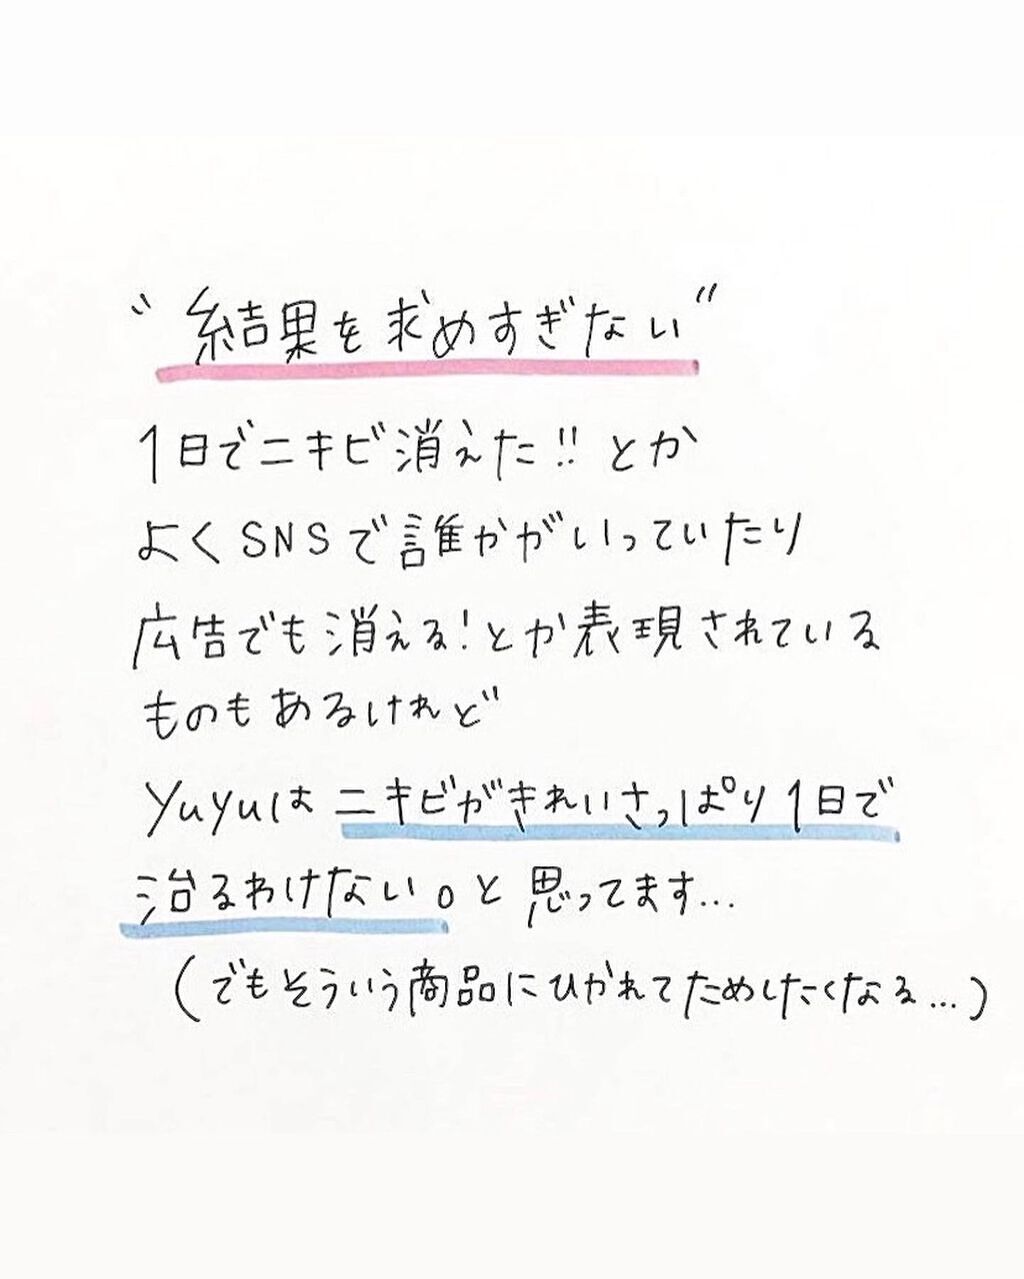 〝結果を求めすぎない〞
1日でニキビ消えた!!とか
よくSNSで誰かがいっていたり
広告でも消える!とか表現されている
ものもあるけれど
yuyuは ニキビがきれいさっぱり1日で
治るわけない。と思ってます...
(でもそういう商品にひかれてためしたくなる...)